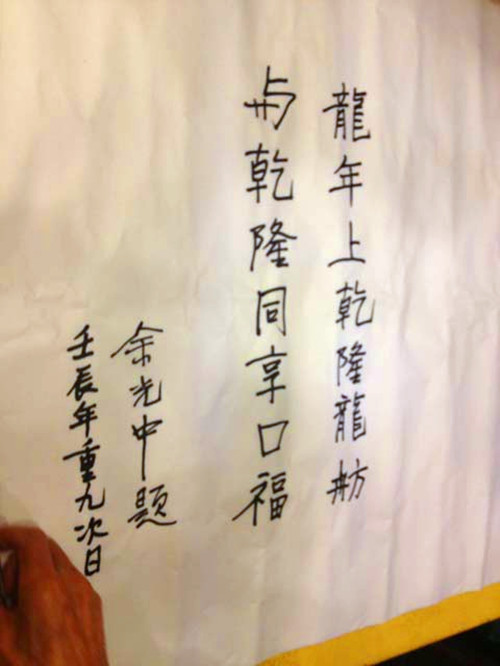 龍年上乾隆龍舫
与乾隆同享口福
余光中題
壬辰年重九次日